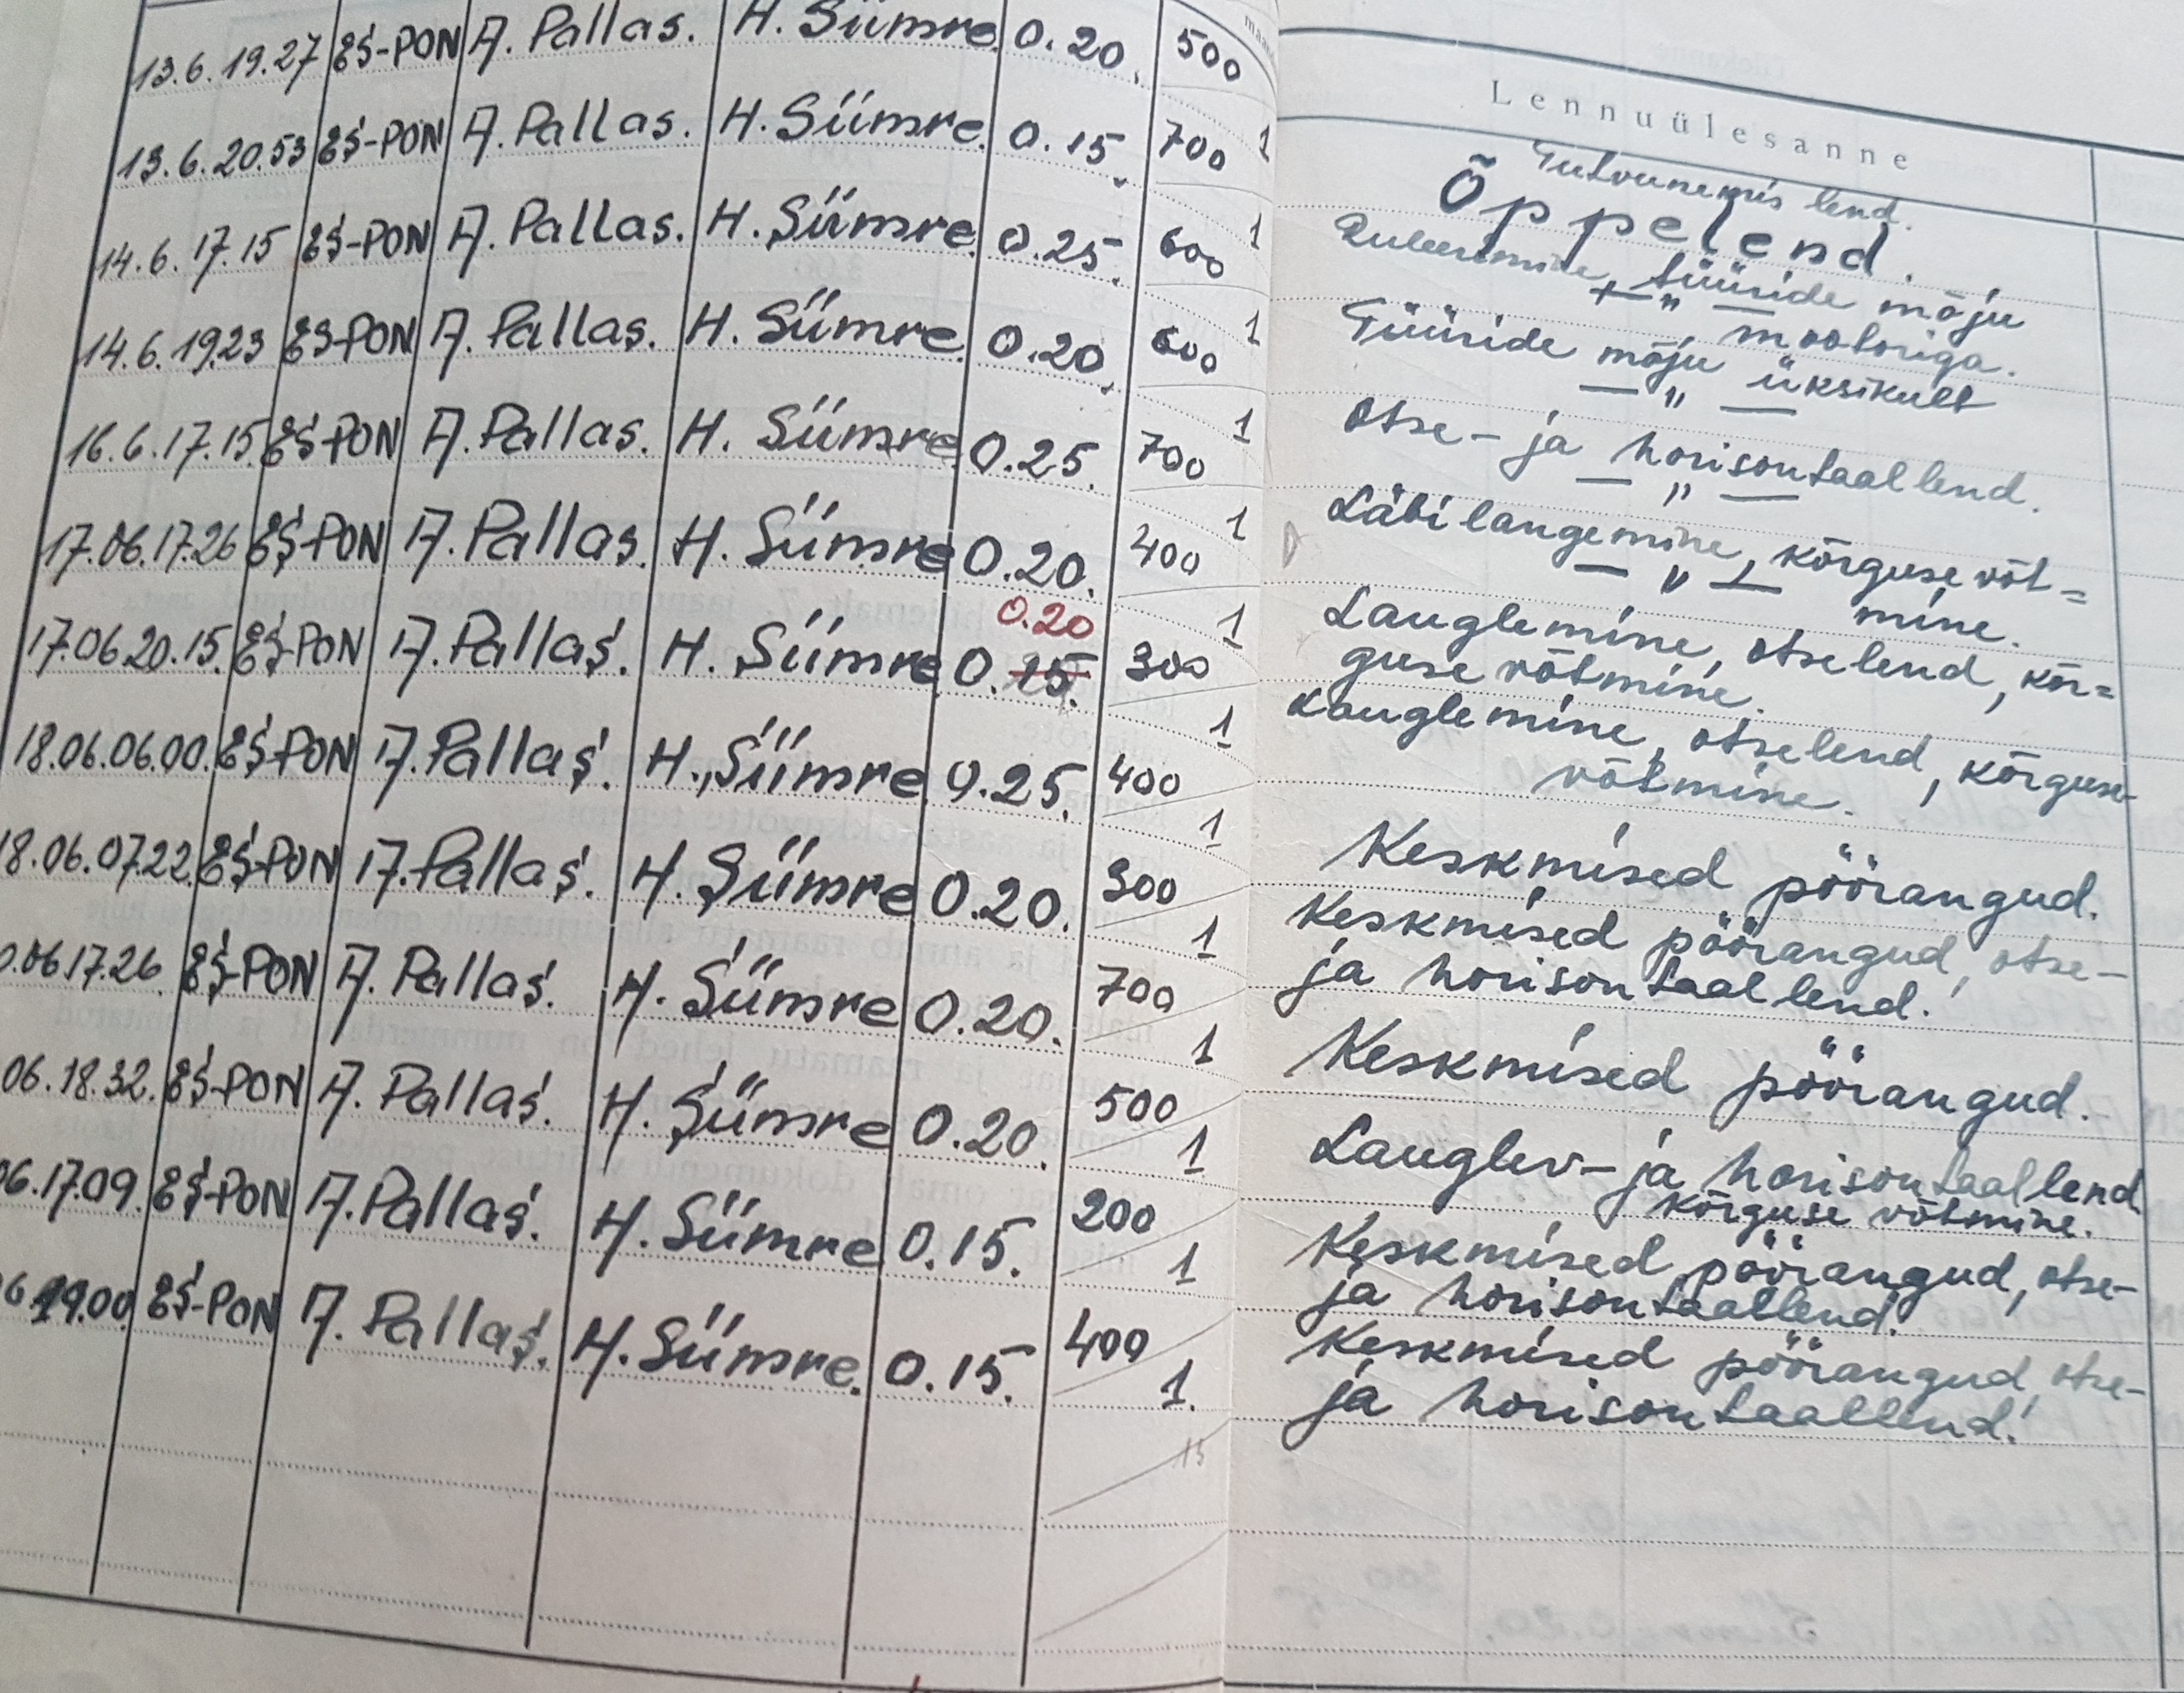 13.6.19.27 ES-PON A. Pallas. H. Siimre. 0.20. 500 1
13.6.20.53 ES-PON A. Pallas. H. Siimre. 0.15. 700 1
14.6.17.15 ES-PON A. Pallas. H. Siimre. 0.25. 600 1
14.6.19.23 ES-PON A. Pallas. H. Siimre. 0.20. 600 1
16.6.17.15. ES-PON A. Pallas. H. Siimre. 0.25. 700 1
17.06.17.26 ES-PON A. Pallas. H. Siimre 0.20. 400 1
0.20
17.06 20.15. ES-PON A. Pallas. H. Siimre 0.15. 300 1
18.06.06.00. ES-PON A. Pallas. H. Siimre. 0.25. 400 1
18.06.07.22. ES-PON A. Pallas. H. Siimre 0.20. 300 1
0.06.17.26. ES-PON A. Pallas. H. Siimre 0.20. 700 1
06.18.32. ES-PON A. Pallas. H. Siimre 0.20. 500 1
06.17.09. ES-PON A. Pallas. H. Siimre 0.15. 200 1
6 19.00. ES-PON A. Pallas. H. Siimre. 0.15. 400 1.
15
Lennuülesanne
Tutvunemis lend.
Õppelend.
Ruleerimine, tüüride mõju
+ — " — mootoriga.
Tüüride mõju üksikult
— " —
Otse- ja horisontaallend.
— " —
Läbilangemine, kõrguse võt=
— " — mine.
Lauglemine, otselend, kõr=
guse võtmine.
Lauglemine, otselend, kõrguse-
võtmine.
Keskmised pöörangud.
Keskmised pöörangud, otse-
ja horisontaallend.
Keskmised pöörangud.
Lauglev- ja horisontaallend
kõrguse võtmine.
Keskmised pöörangud, otse-
ja horisontaallend.
Keskmised pöörangud, otse-
ja horisontaallend.